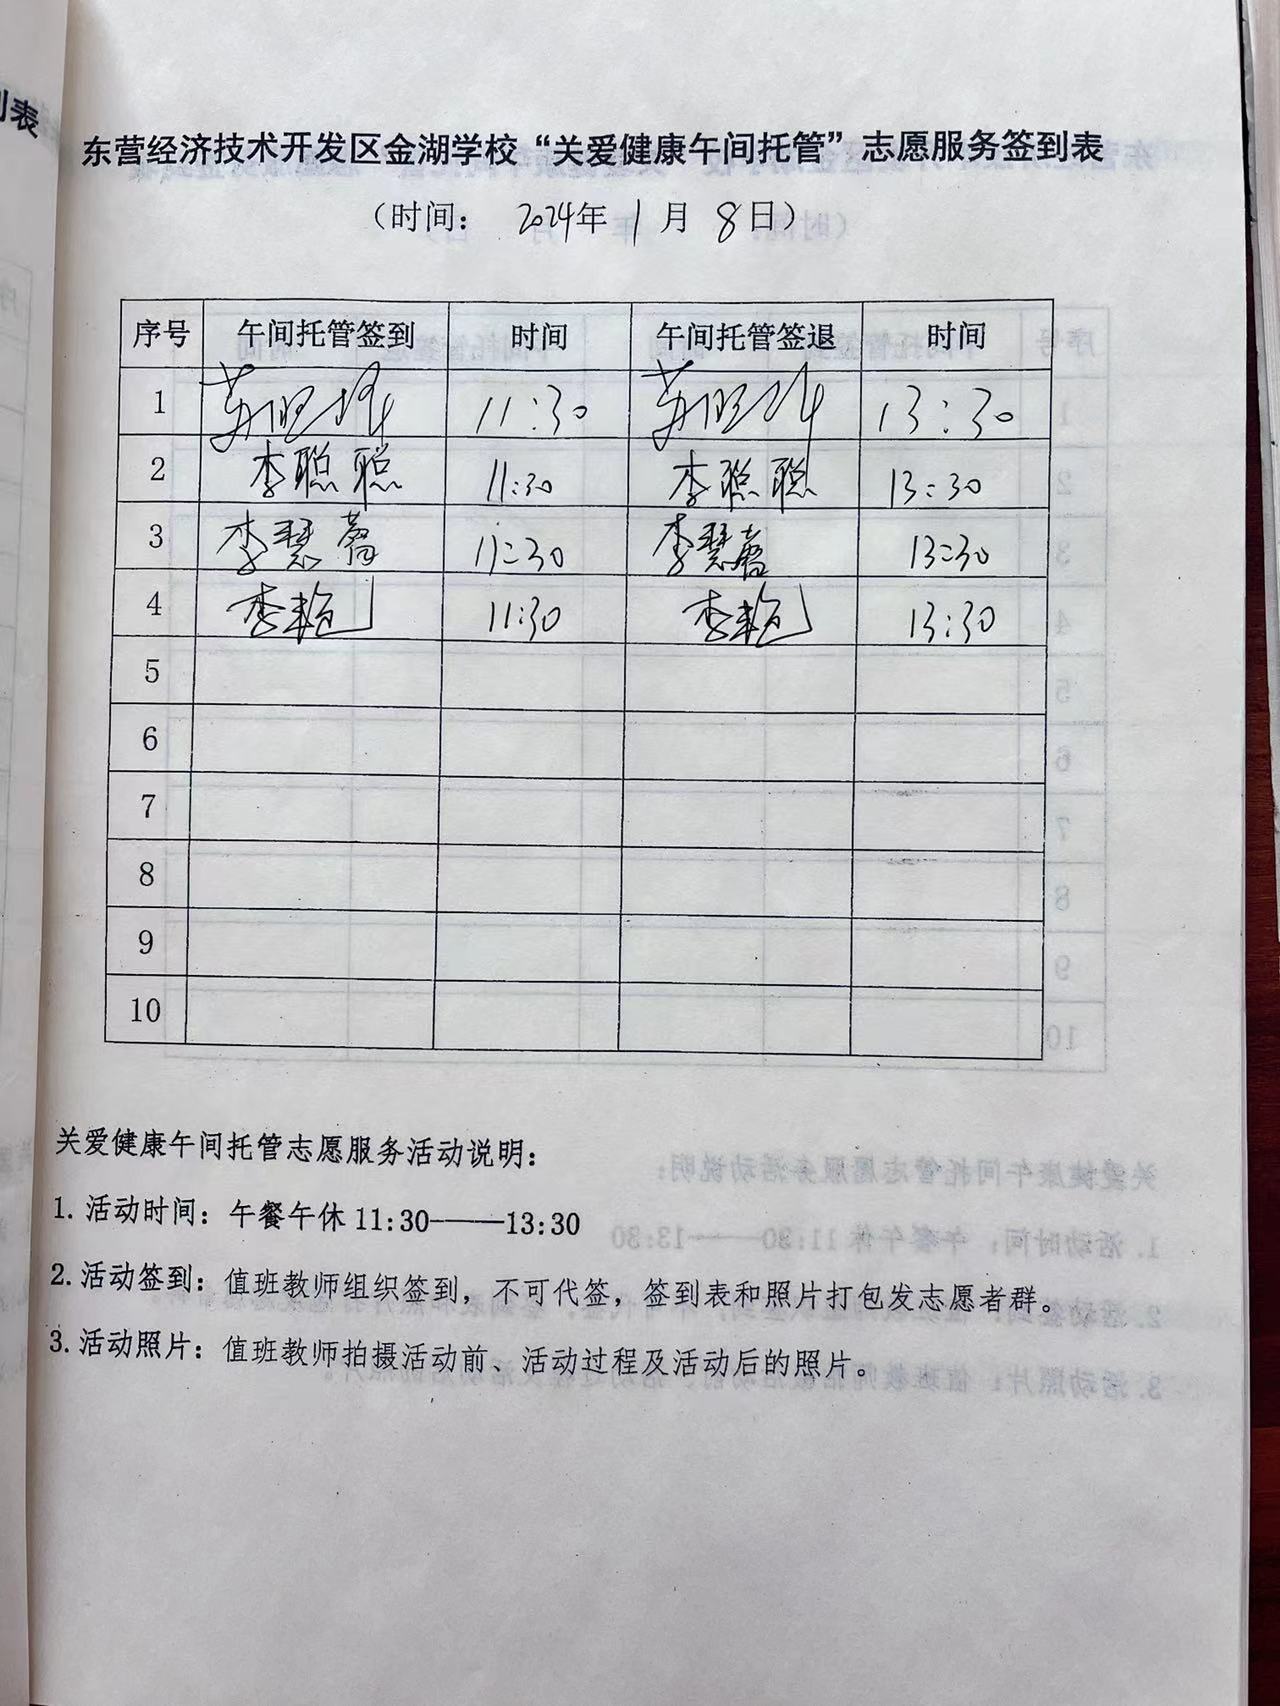 到表
东营经济技术开发区金湖学校“关爱健康午间托管”志愿服务签到表
（时间： 2024年 1 月 8日）
序号 午间托管签到 时间 午间托管签退 时间
1 11:30 13:30
2 李聪聪 11:30 李聪聪 13:30
3 李慧 11:30 李慧 13:30
4 李艳 11:30 李艳 13:30
5
6
7
8
9
10
关爱健康午间托管志愿服务活动说明：
1. 活动时间：午餐午休 11:30——13:30
2. 活动签到：值班教师组织签到，不可代签，签到表和照片打包发志愿者群。
3. 活动照片：值班教师拍摄活动前、活动过程及活动后的照片。